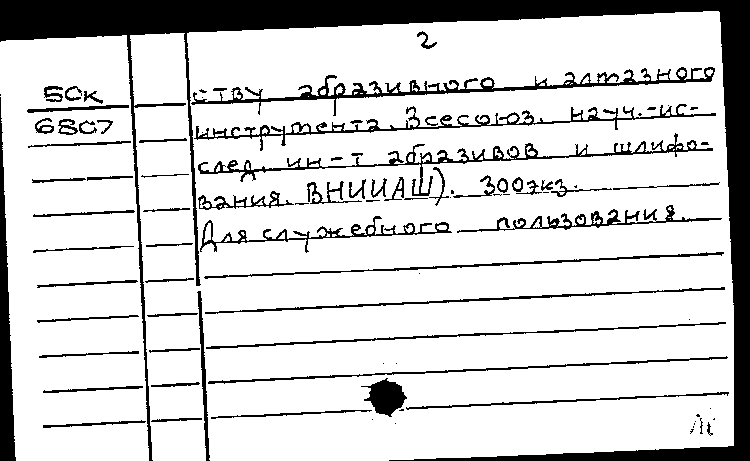 2
50к
6807
ству абразивного и алмазного
инструмента. Всесоюз. науч.-ис-
след. ин-т абразивов и шлифо-
вания. ВНИИАШ). 300экз.
Для служебного пользования.